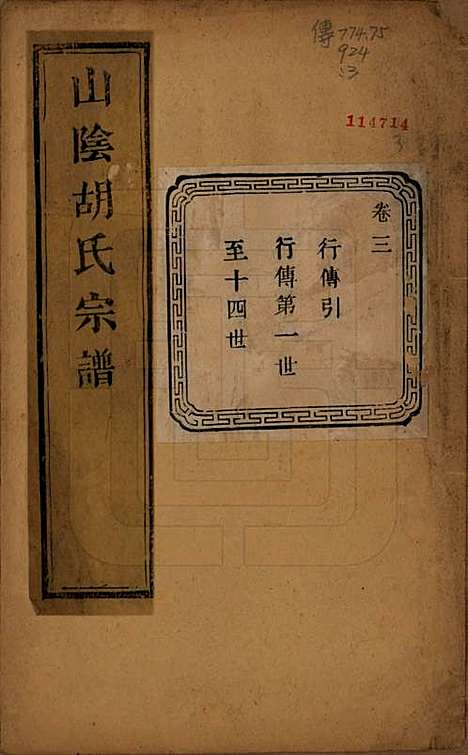 山陰胡氏宗譜
傳774.75
924
:3
114714
卷三
行傳引
行傳第一世
至十四世